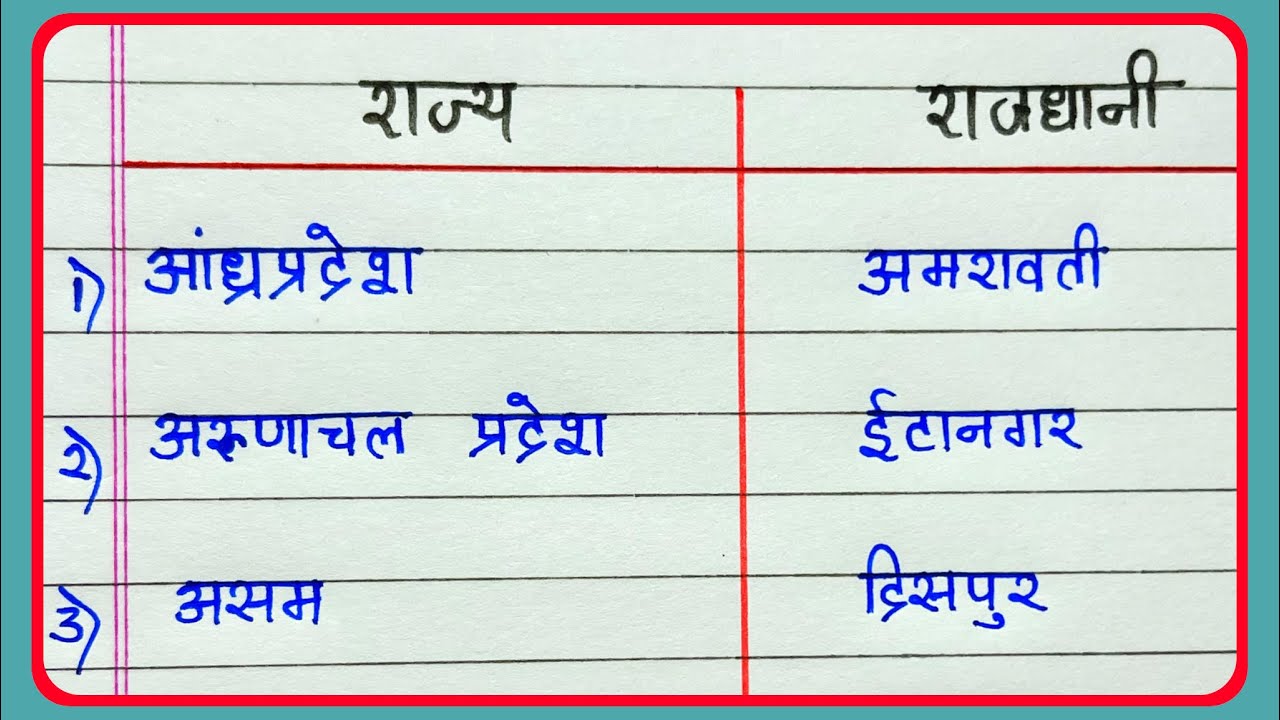 राज्य राजधानी
1) आंध्रप्रदेश अमरावती
२) अरुणाचल प्रदेश ईटानगर
3) असम दिसपुर